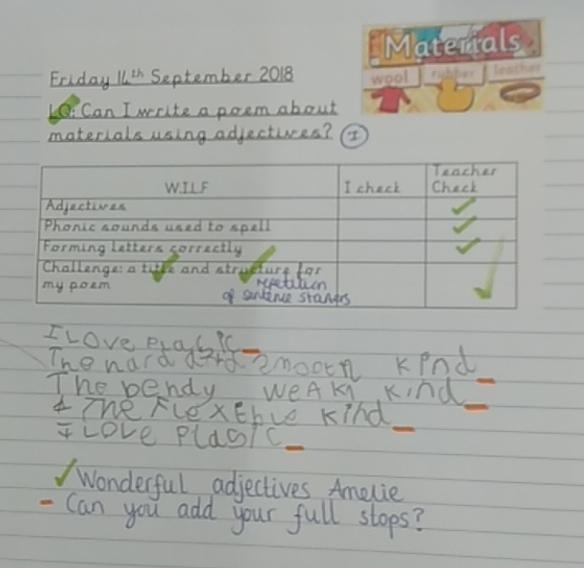 Materials
wool rubber leather
Friday 14th September 2018
LQ: Can I write a poem about
materials using adjectives? I
W.I.L.F I check Teacher Check
Adjectives
Phonic sounds used to spell
Forming letters correctly
Challenge: a title and structure for
my poem
repetition
of sentence starters
I LOVE PLASIC
The hard and smooth kind
The bendy weak kind
& The FLEXEBLE kind
I LOVE PLASIC
Wonderful adjectives Amelie
Can you add your full stops?